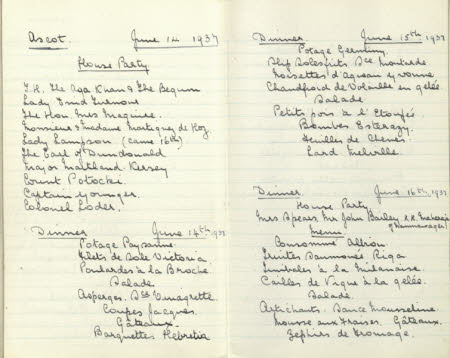 Ascot. June 14 1937
House Party
T.H. The Aga Khan & The Begum
Lady Enid Turnour
The Hon Mrs Maguire.
Monsieur & Madame Martinez de Hoz
Lady Lampson (came 16th)
The Earl of Dundonald
Major Maitland Kersey
Count Potocki
Captain Younger.
Colonel Loder.
Dinner June 14th 1937
Potage Paysanne.
Filets de Sole Victoria
Poulardes à la Broche.
Salade.
Asperges. Sce Vinaigrette
Coupes Jacques.
Gâteaux.
Barquettes Helvetia
Dinner. June 15th 1937
Potage Germiny.
Slip Soles frits Sce Moutarde
Noisettes d'Agneau Yvonne
Chaudfroid de Volaille en gelée
Salade
Petits pois à l'Etouffée
Bombes Esterazy.
Feuilles de Chênes.
Lard Melville.
Dinner June 16th, 1937
House Party
Mrs Spears Mr John Bailey
Menu
Consommé Albion.
Truites Saumonées Riga
Timbales à la Milanaise.
Cailles de Vigne à la gelée.
Salade.
Artichauts. Sauce Mousseline
Mousse aux Fraises. Gâteaux.
Zephirs de Fromage.